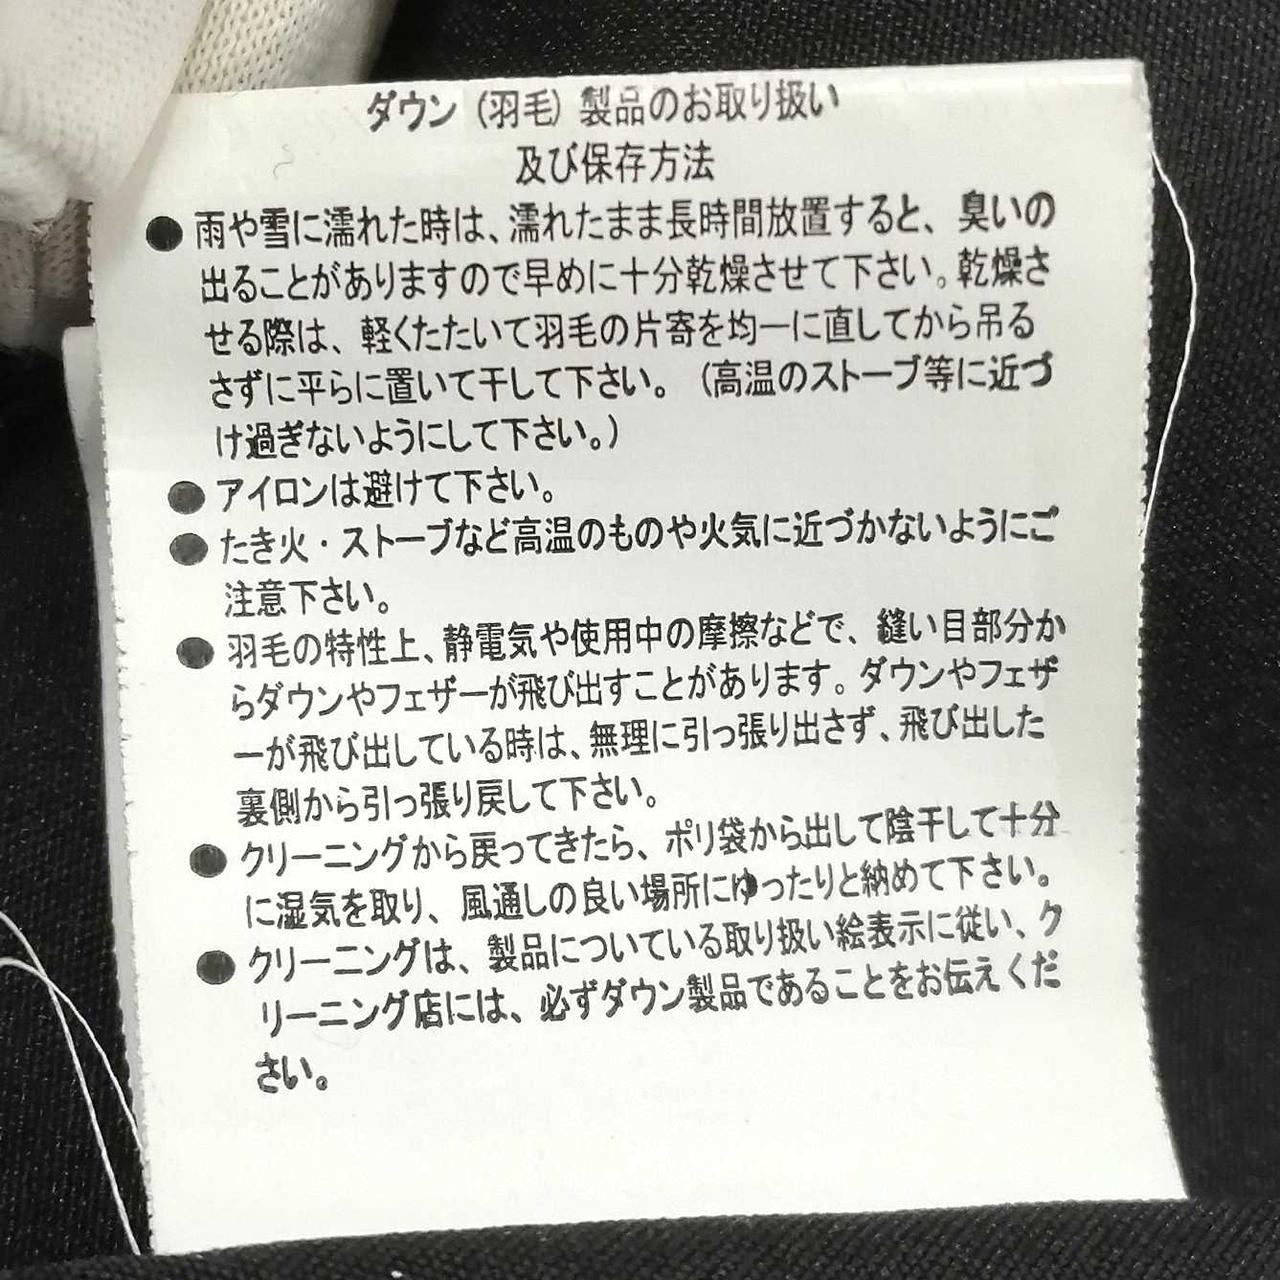 ダウン（羽毛）製品のお取り扱い
及び保存方法
●雨や雪に濡れた時は、濡れたまま長時間放置すると、臭いの
出ることがありますので早めに十分乾燥させて下さい。乾燥さ
せる際は、軽くたたいて羽毛の片寄を均一に直してから吊る
さずに平らに置いて干して下さい。（高温のストーブ等に近づ
け過ぎないようにして下さい。）
●アイロンは避けて下さい。
●たき火・ストーブなど高温のものや火気に近づかないようにご
注意下さい。
●羽毛の特性上、静電気や使用中の摩擦などで、縫い目部分か
らダウンやフェザーが飛び出すことがあります。ダウンやフェザ
ーが飛び出している時は、無理に引っ張り出さず、飛び出した
裏側から引っ張り戻して下さい。
●クリーニングから戻ってきたら、ポリ袋から出して陰干して十分
に湿気を取り、風通しの良い場所にゆったりと納めて下さい。
●クリーニングは、製品についている取り扱い絵表示に従い、ク
リーニング店には、必ずダウン製品であることをお伝えくだ
さい。